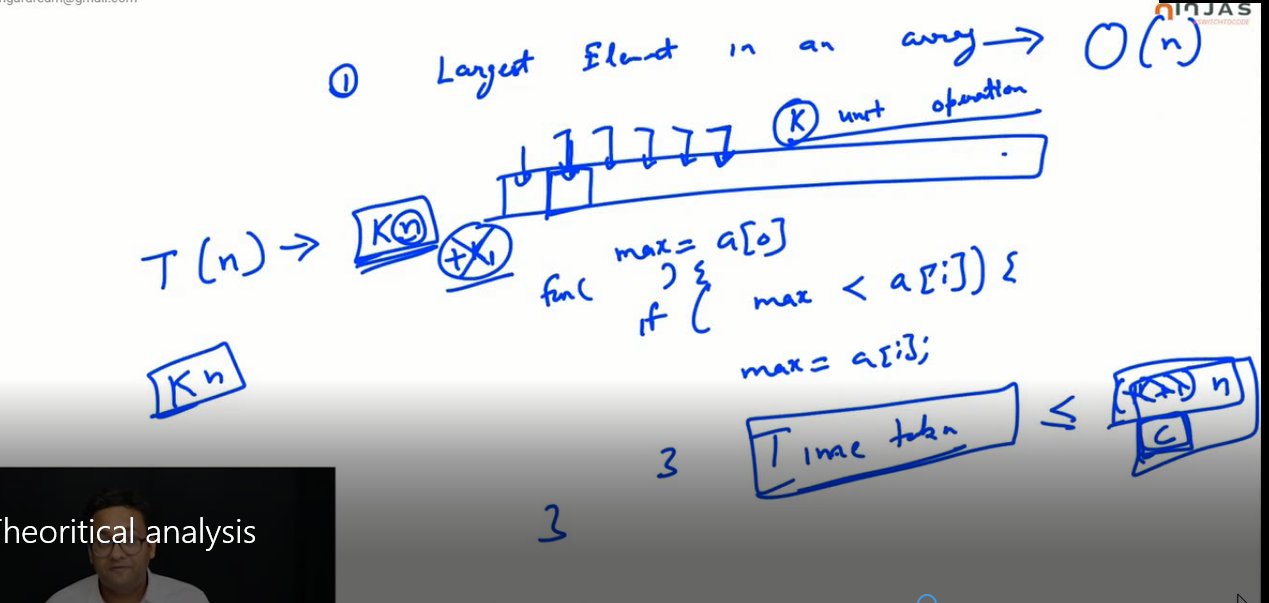 ngardream@gmail.com
NINJAS
① Largest Element in an array → O(n)
K unit operation
T(n) → Kn + K₁
max = a[0]
func ( ) {
if ( max < a[i]) {
max = a[i];
Kn
Time taken ≤ (K+1) n
C
}
}
Theoritical analysis